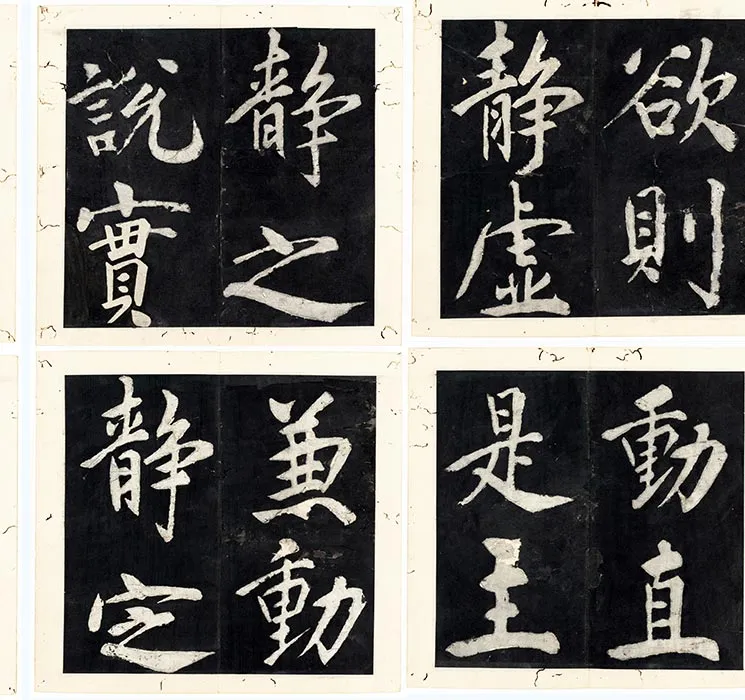 欲則
靜虛
靜之
說實
動直
是主
兼動
靜定